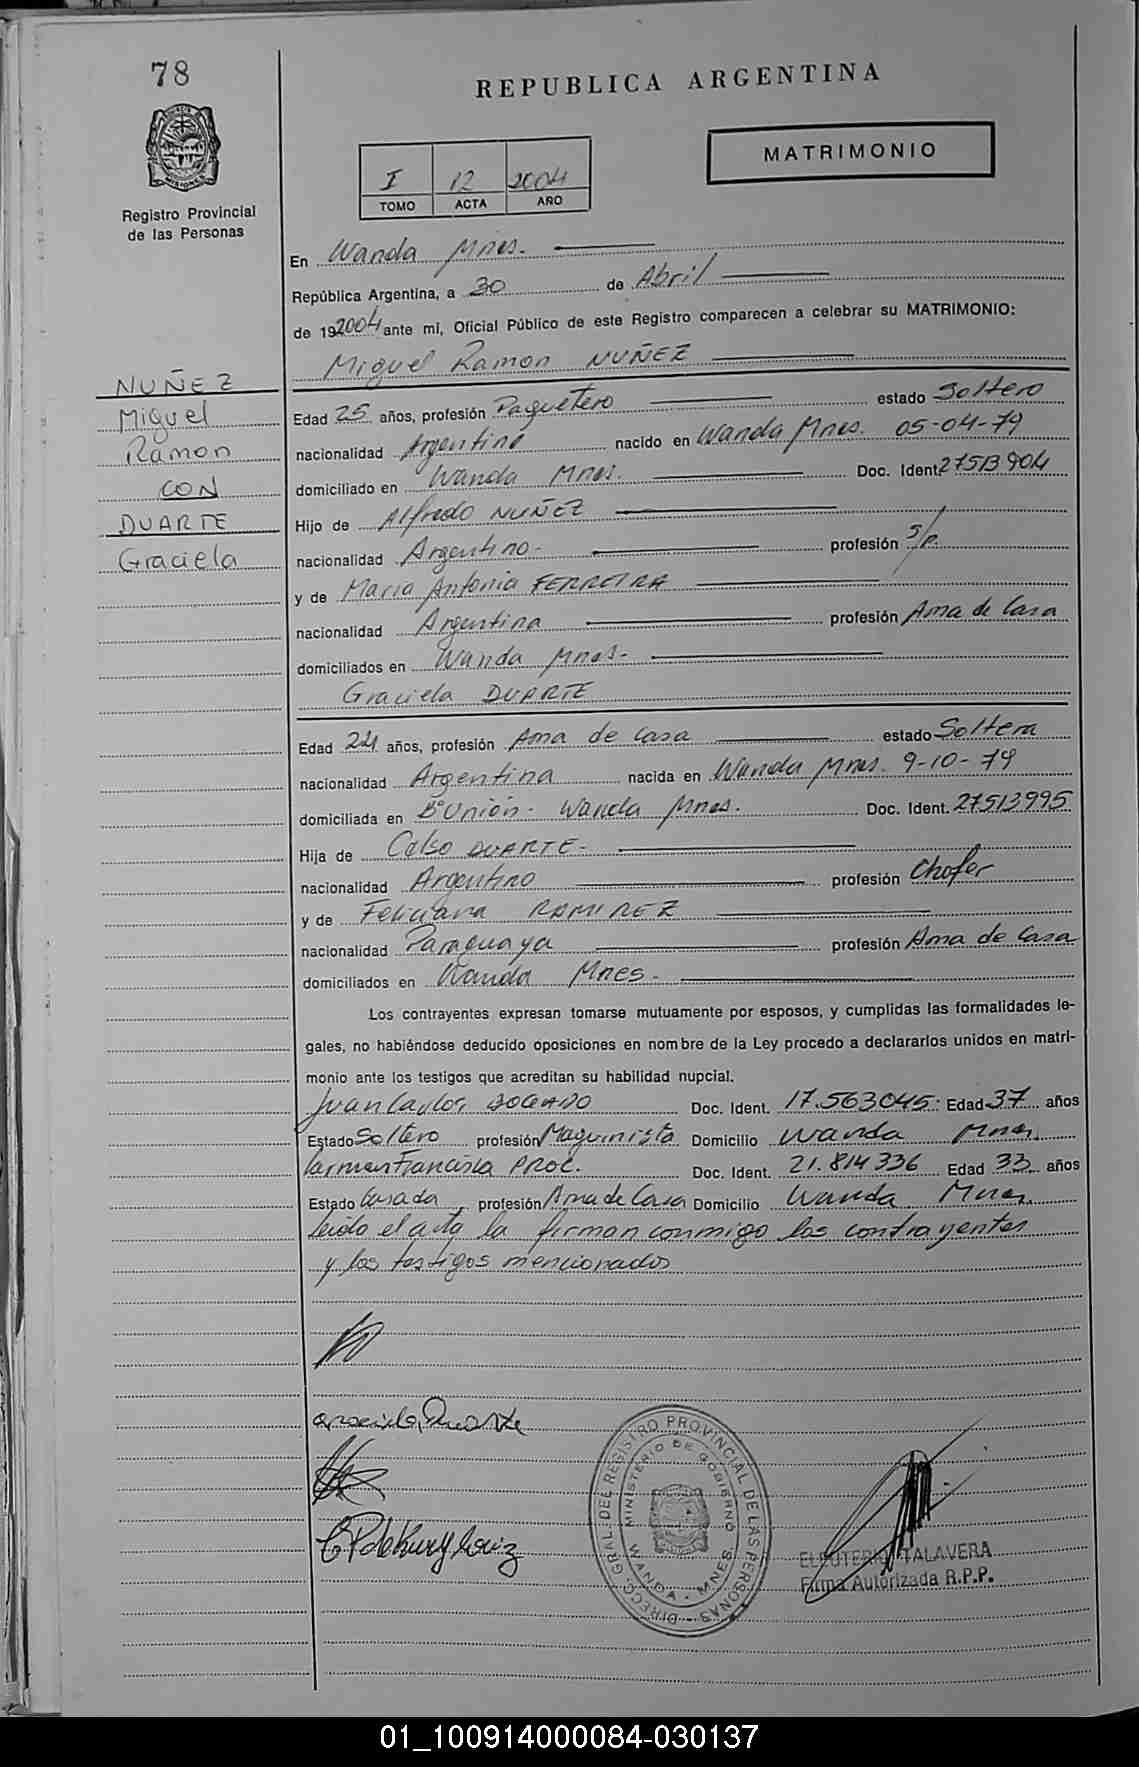 78
REPUBLICA ARGENTINA
MATRIMONIO
I 12 2004
TOMO ACTA AÑO
MISIONES
Registro Provincial
de las Personas
En Wanda Mnes.
República Argentina, a 30 de Abril
de 192004 ante mi, Oficial Público de este Registro comparecen a celebrar su MATRIMONIO:
Miguel Ramon NUÑEZ
NUÑEZ
Miguel
Ramon
CON
DUARTE
Graciela
Edad 25 años, profesión Paquetero estado Soltero
nacionalidad Argentina nacido en Wanda Mnes. 05-04-79
domiciliado en Wanda Mnes. Doc. Ident. 27513904
Hijo de Alfredo NUÑEZ
nacionalidad Argentino- profesión S/P.
y de Maria Antonia FERREIRA
nacionalidad Argentina profesión Ama de Casa
domiciliados en Wanda Mnes-
Graciela DUARTE
Edad 24 años, profesión Ama de Casa estado Soltera
nacionalidad Argentina nacida en Wanda Mnes. 9-10-79
domiciliada en Bº Unión- Wanda Mnes. Doc. Ident. 27513995
Hija de Celso DUARTE-
nacionalidad Argentino profesión Chofer
y de Feliciana RAMIREZ
nacionalidad Paraguaya profesión Ama de Casa
domiciliados en Wanda Mnes-
Los contrayentes expresan tomarse mutuamente por esposos, y cumplidas las formalidades le-
gales, no habiéndose deducido oposiciones en nombre de la Ley procedo a declararlos unidos en matri-
monio ante los testigos que acreditan su habilidad nupcial.
Juan Carlos BOGADO Doc. Ident. 17.563045 Edad 37 años
Estado Soltero profesión Maquinista Domicilio Wanda Mnes.
Carmen Francisca Doc. Ident. 21.814336 Edad 33 años
Estado Casada profesión Ama de Casa Domicilio Wanda Mnes.
Leida el acta la firman conmigo los contrayentes
y los testigos mencionados
Graciela Duarte
DIRECC. GRAL. DEL REGISTRO PROVINCIAL DE LAS PERSONAS
MINISTERIO DE GOBIERNO
WANDA - MNES
ELEUTERIO TALAVERA
Firma Autorizada R.P.P.
01_100914000084-030137